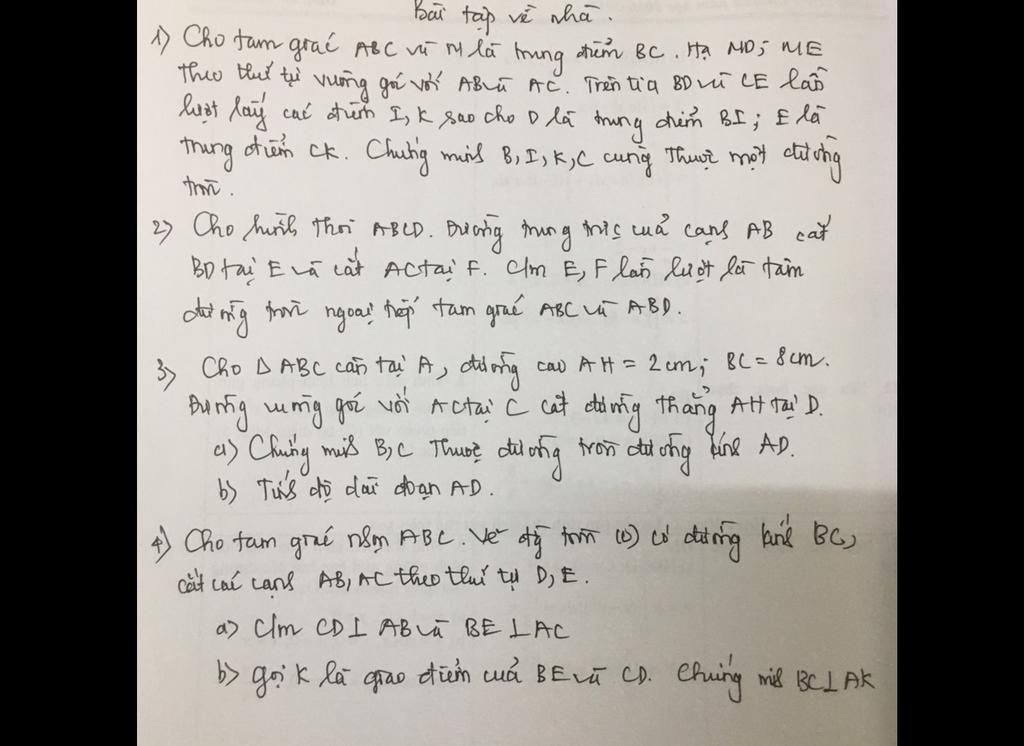 Bài tập về nhà.
1) Cho tam giác ABC và M là trung điểm BC. Hạ MD; ME
theo thứ tự vuông góc với AB và AC. Trên tia BD và CE lần
lượt lấy các điểm I, K sao cho D là trung điểm BI; E là
trung điểm CK. Chứng minh B, I, K, C cùng thuộc một đường
tròn.
2) Cho hình thoi ABCD. Đường trung trực của cạnh AB cắt
BD tại E và cắt AC tại F. C/m E, F lần lượt là tâm
đường tròn ngoại tiếp tam giác ABC và ABD.
3) Cho Δ ABC cân tại A, đường cao AH = 2cm; BC = 8cm.
Đường vuông góc với AC tại C cắt đường thẳng AH tại D.
a) Chứng minh B, C thuộc đường tròn đường kính AD.
b) Tính độ dài đoạn AD.
4) Cho tam giác nhọn ABC. Vẽ đg tròn (O) có đường kính BC,
cắt các cạnh AB, AC theo thứ tự D, E.
a) C/m CD ⊥ AB và BE ⊥ AC
b) Gọi K là giao điểm của BE và CD. Chứng minh BC ⊥ AK